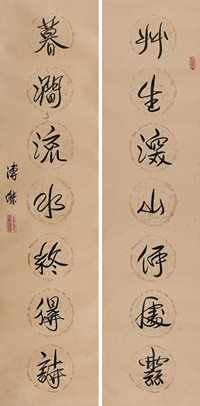 艸生深山何處靈
暮澗流水終得詩
溥傑